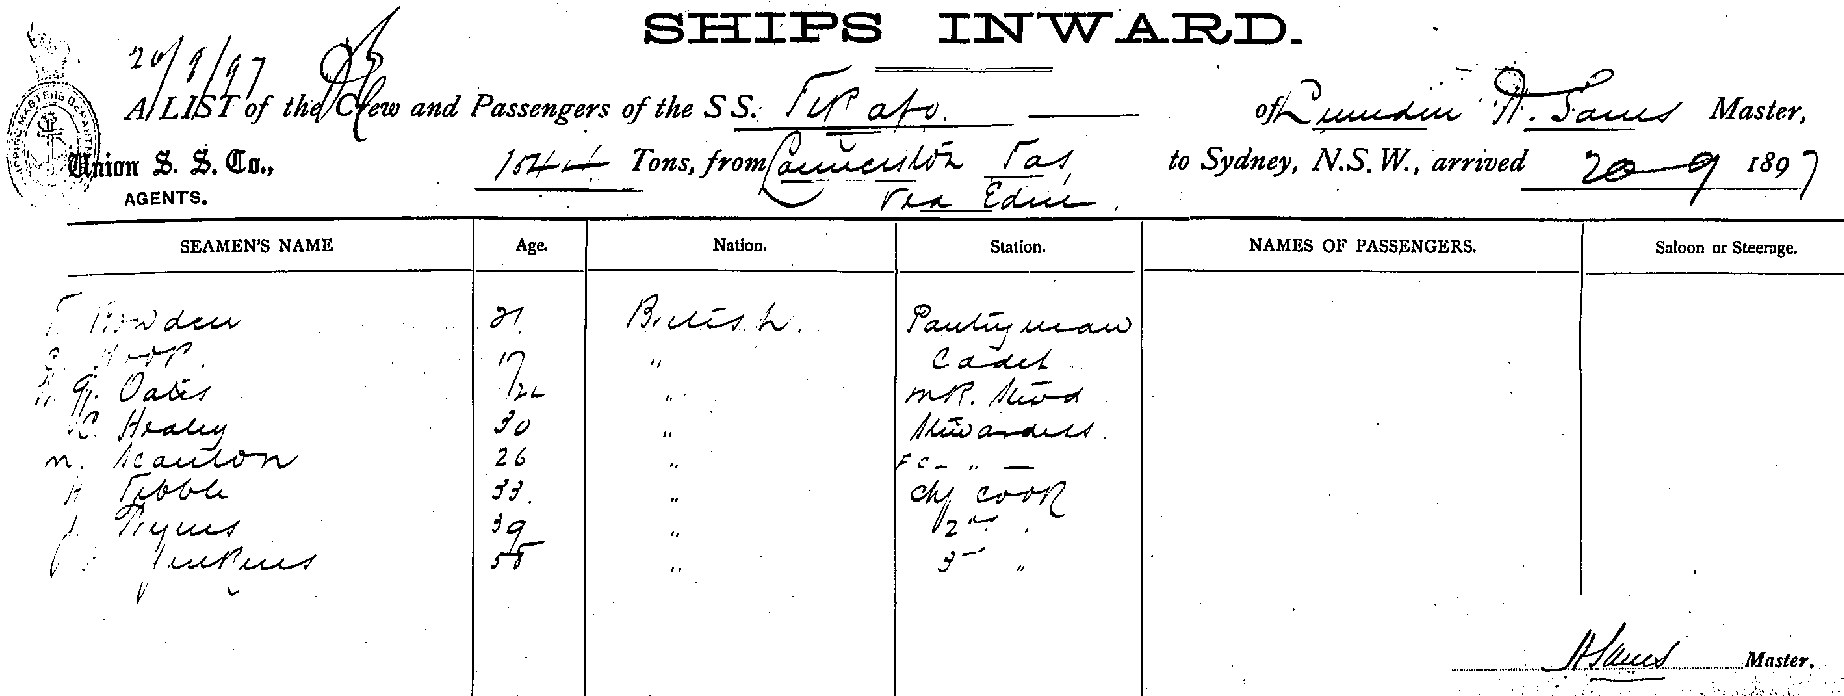 SHIPS INWARD.
20/9/97
A LIST of the Crew and Passengers of the SS. Tekapo. of Dunedin H. James Master,
Union S. S. Co., 1544 Tons, from Launceston Tas, to Sydney, N.S.W., arrived 20 9 1897
AGENTS. via Eden.
SEAMEN'S NAME Age. Nation. Station. NAMES OF PASSENGERS. Saloon or Steerage.
Bowden 21 British. Pantryman
17 " Cadet
Oates 22 " M.R. Stwd
C. Healey 30 " Stewardess.
M. Scanlon 26 " FC - " -
H Tibble 33. " Chf Cook
39 " 2nd "
Jenkins 55 " 3rd "
Master.